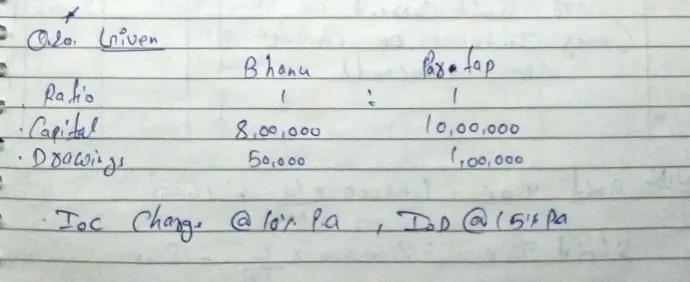 Q20. Given
Bhanu Partap
Ratio 1 : 1
· Capital 8,00,000 10,00,000
· Drawings 50,000 1,00,000
· IOC Charge @ 10% P.a , IOD @ 15% Pa